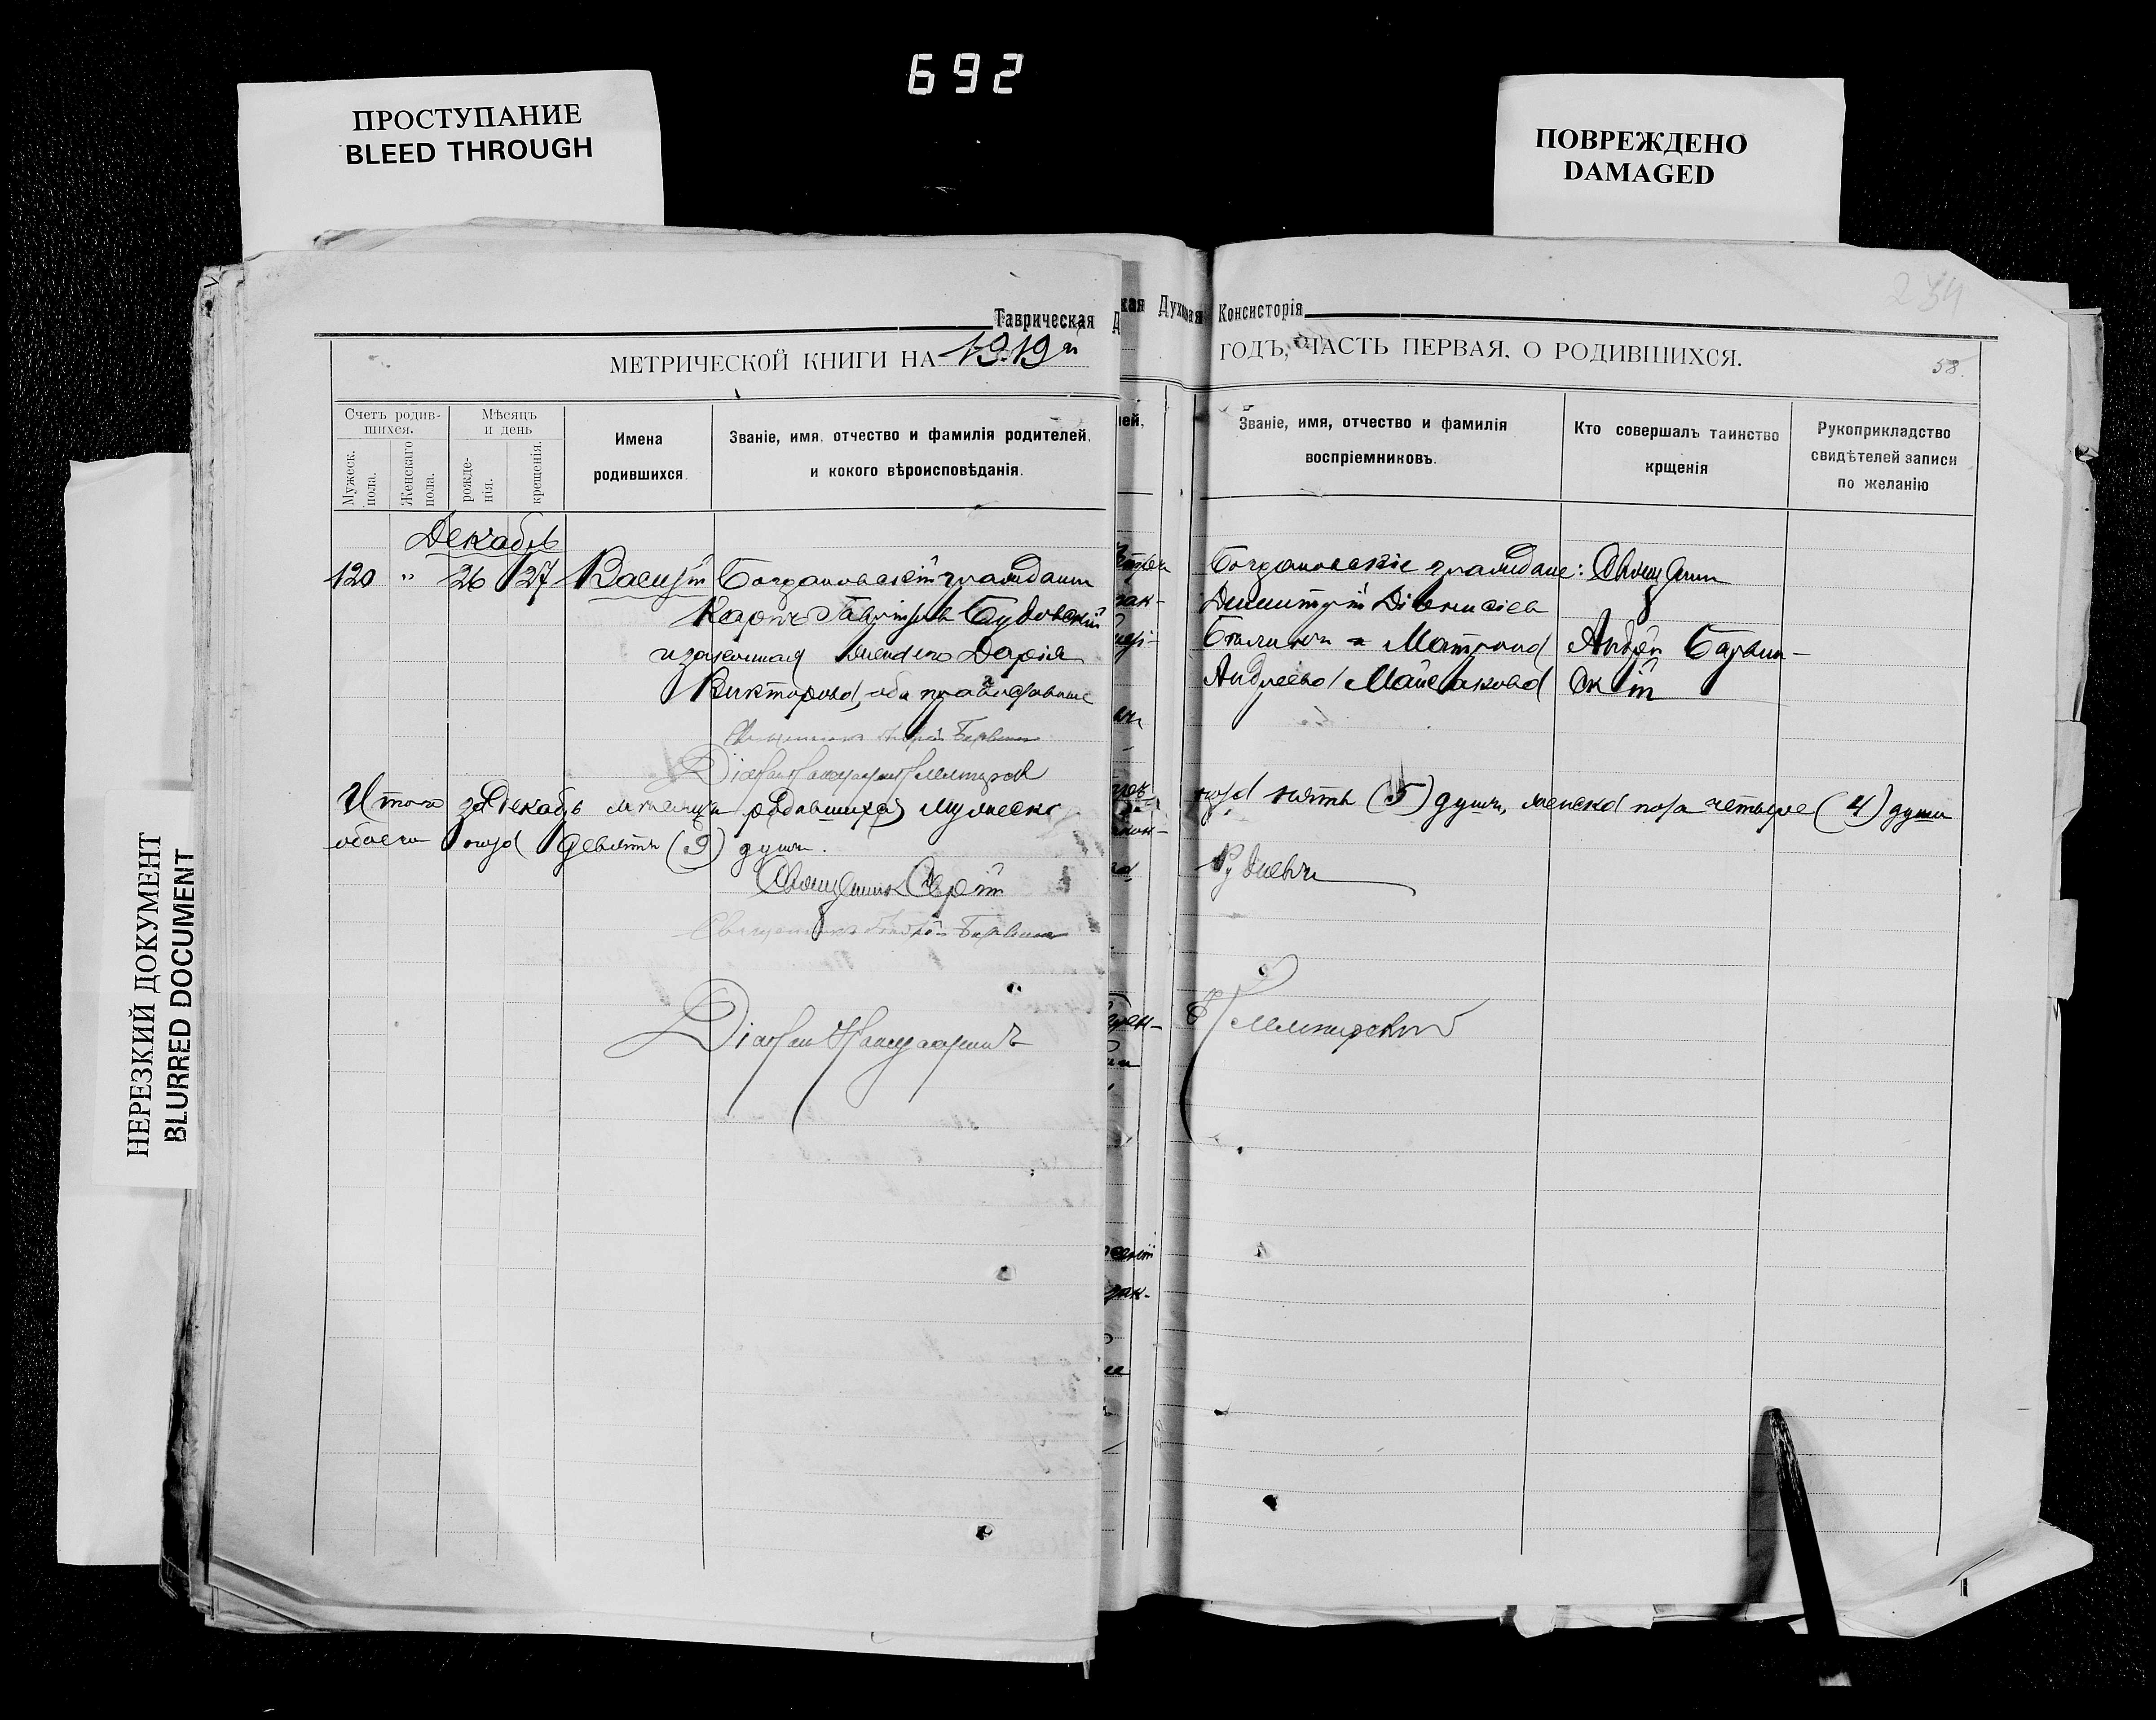 692
ПРОСТУПАНИЕ
BLEED THROUGH
ПОВРЕЖДЕНО
DAMAGED
НЕРЕЗКИЙ ДОКУМЕНТ
BLURRED DOCUMENT
Таврическая
кая Духовная Консисторія
МЕТРИЧЕСКОЙ КНИГИ НА 1919 й
ГОДЪ, ЧАСТЬ ПЕРВАЯ, О РОДИВШИХСЯ.
58.
Счетъ родив-
шихся.
Мужеск.
пола.
Женскаго
пола.
Мѣсяцъ
и день
рожде-
нія.
крещенія.
Имена
родившихся
Званіе, имя, отчество и фамилія родителей,
и кокого вѣроисповѣданія.
Званіе, имя, отчество и фамилія
воспріемниковъ.
Кто совершалъ таинство
крщенія
Рукоприкладство
свидѣтелей записи
по желанію
Декабрь
120 " 26 27 Василій Богдановскій гражданинъ
Карпъ Гавріиловъ Будовскій
и законная жена его Дарія
Викторова, оба православные
Богдановскіе граждане:
Димитрій Діонисіевъ
и Матрона
Андреева
Священник
Андрей Барвин-
скій
Священникъ Андрей Барвин
Итого за Декабрь мѣсяцъ родившихся мужеска
пола пять (5) душъ, женска пола четыре (4) души
обоего пола девять (9) душъ.
Священник Сергій
Рудневъ
Священникъ Андрей Барвин